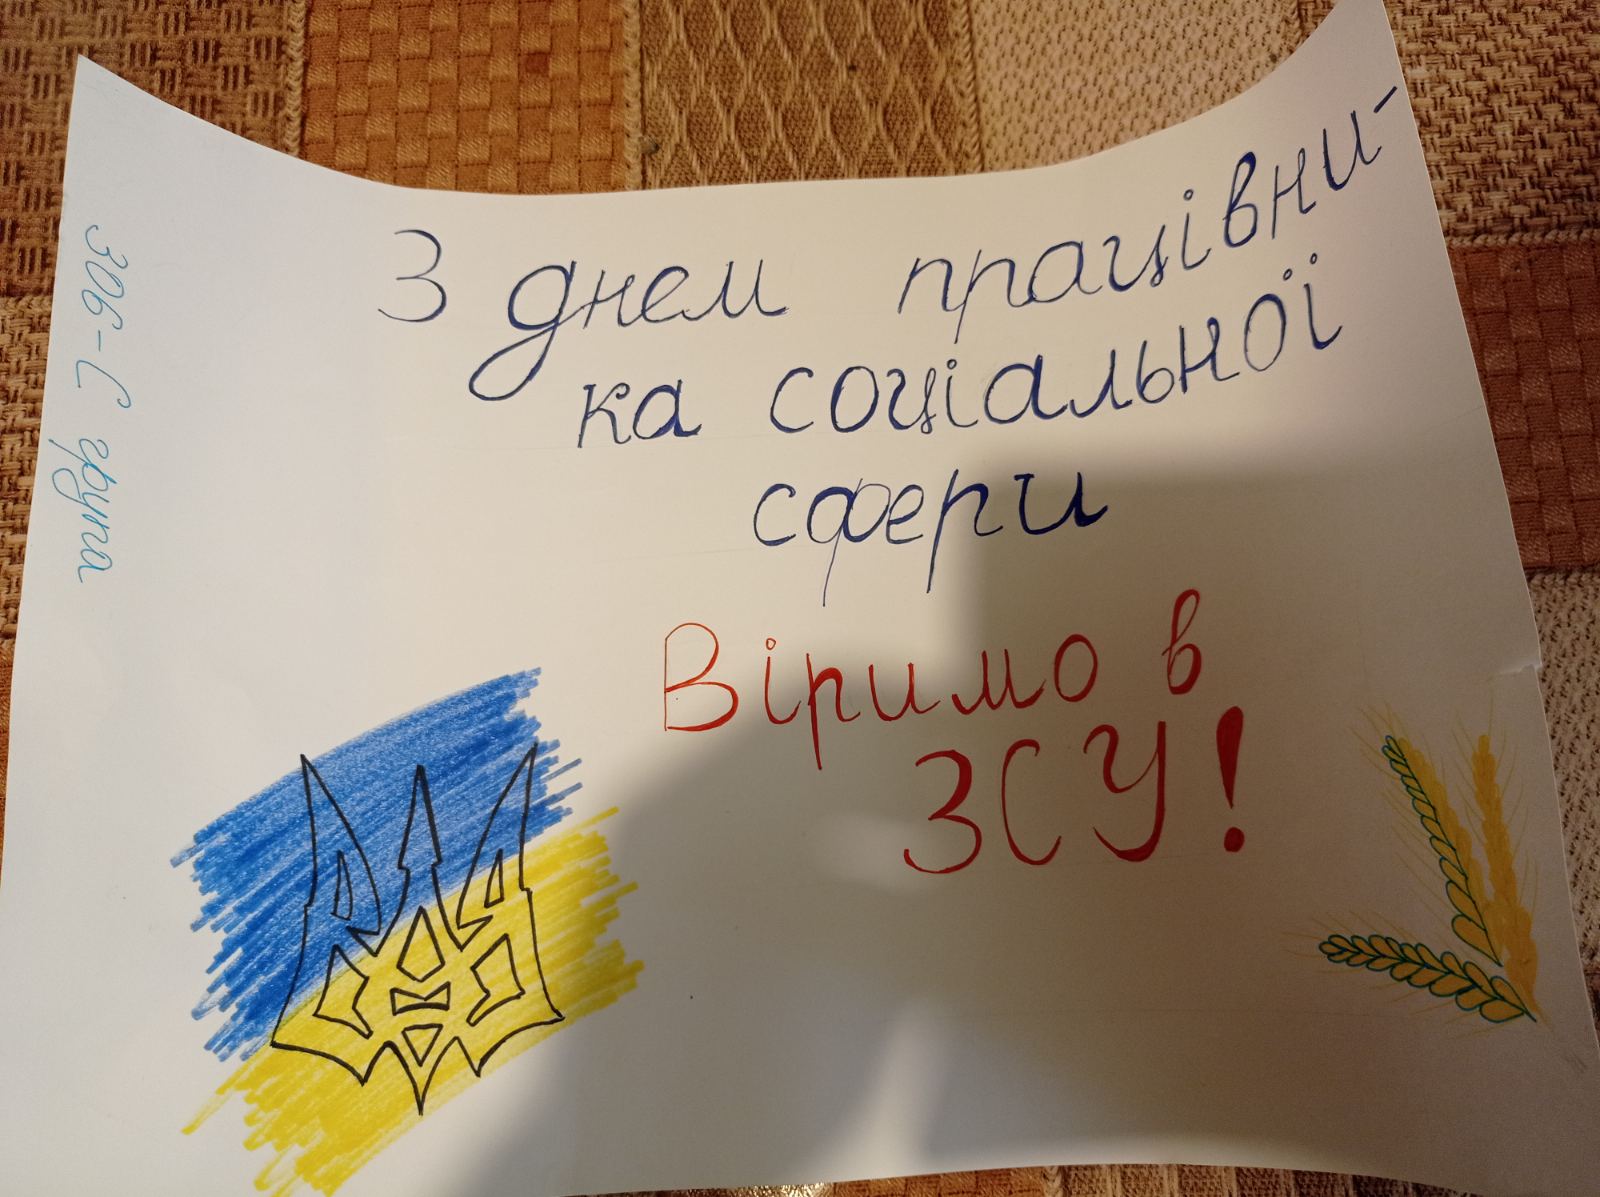 З днем працівни-
ка соціальної
сфери
Віримо в
ЗСУ!
306-С група